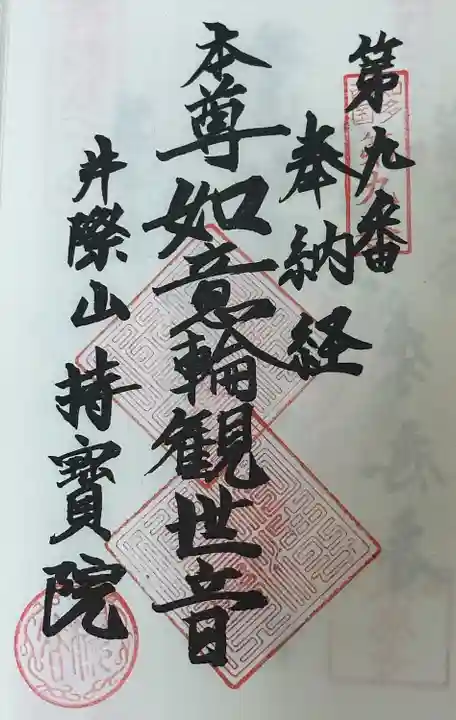 第九番
奉納経
本尊如意輪観世音
井際山持寶院